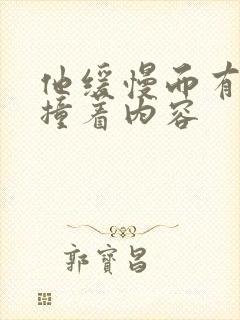 他缓慢而有
撞着内容
郭寳昌